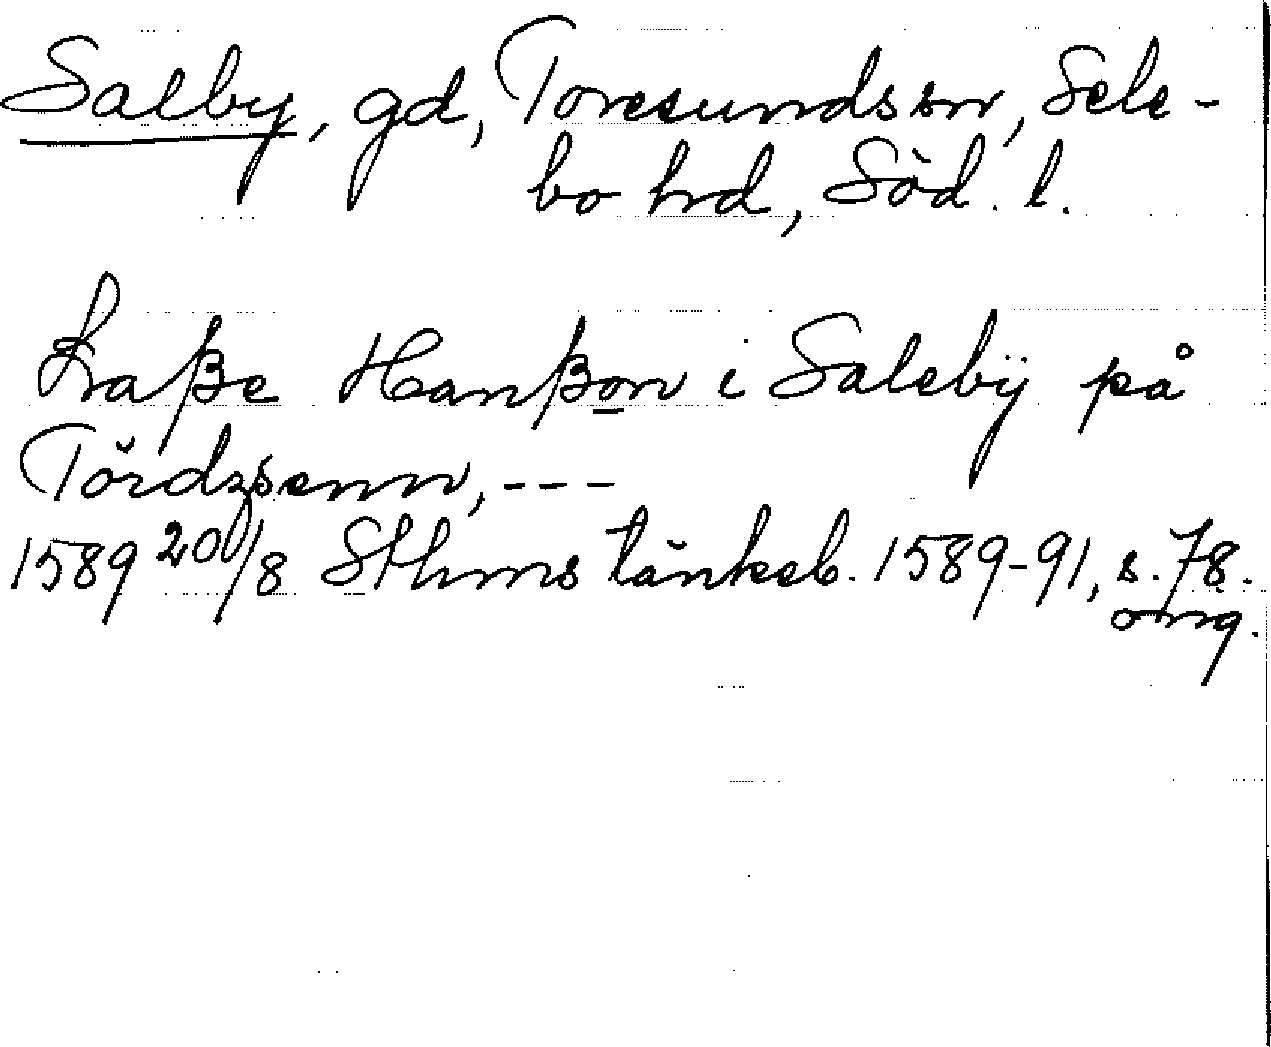 Salby, gd, Toresundssn, Sele-
bo hd, Söd. l.
Laße Hanßon i Salebÿ på
Tördzsenn, ---
1589 20/8 Sthms tänkeb. 1589-91, s. 78.
orig.